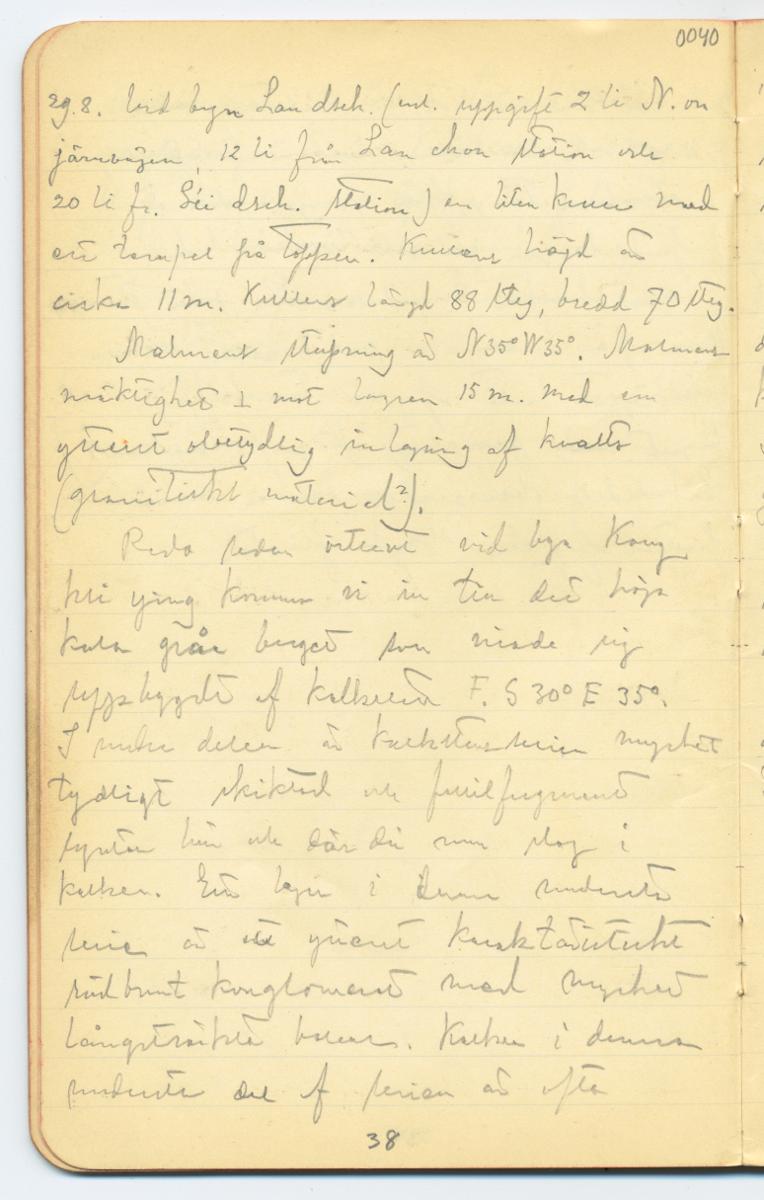 0040
29.8. Vid byn Lan dsch. (enl. uppgift 2 li N. om
järnvägen, 12 li från Lan chou station och
20 li fr. Lei dsch. station) en liten kulle med
ett tempel på toppen. Kullens höjd är
cirka 11 m. Kullens längd 88 steg, bredd 70 steg.
Malmens stupning är N35°W35°. Malmens
mäktighet ⊥ mot lagren 15 m. med en
ytterst obetydlig inlagring af kvarts
(granitiskt material?).
Redan österut vid byn Kang
ying kommer vi in till det höga
kala gråa berget som visade sig
uppbyggdt af kalksten F. S 30° E 35°.
I undre delen är kalkstensserien mycket
tydligt skiktad och fossilfragment
syntes här och där då man slog i
kalken. Ett lager i denna understa
serie är ett ytterst karaktäristiskt
rödbrunt konglomerat med mycket
långsträckta bollar. Kalken i denna
understa del af serien är ofta
38